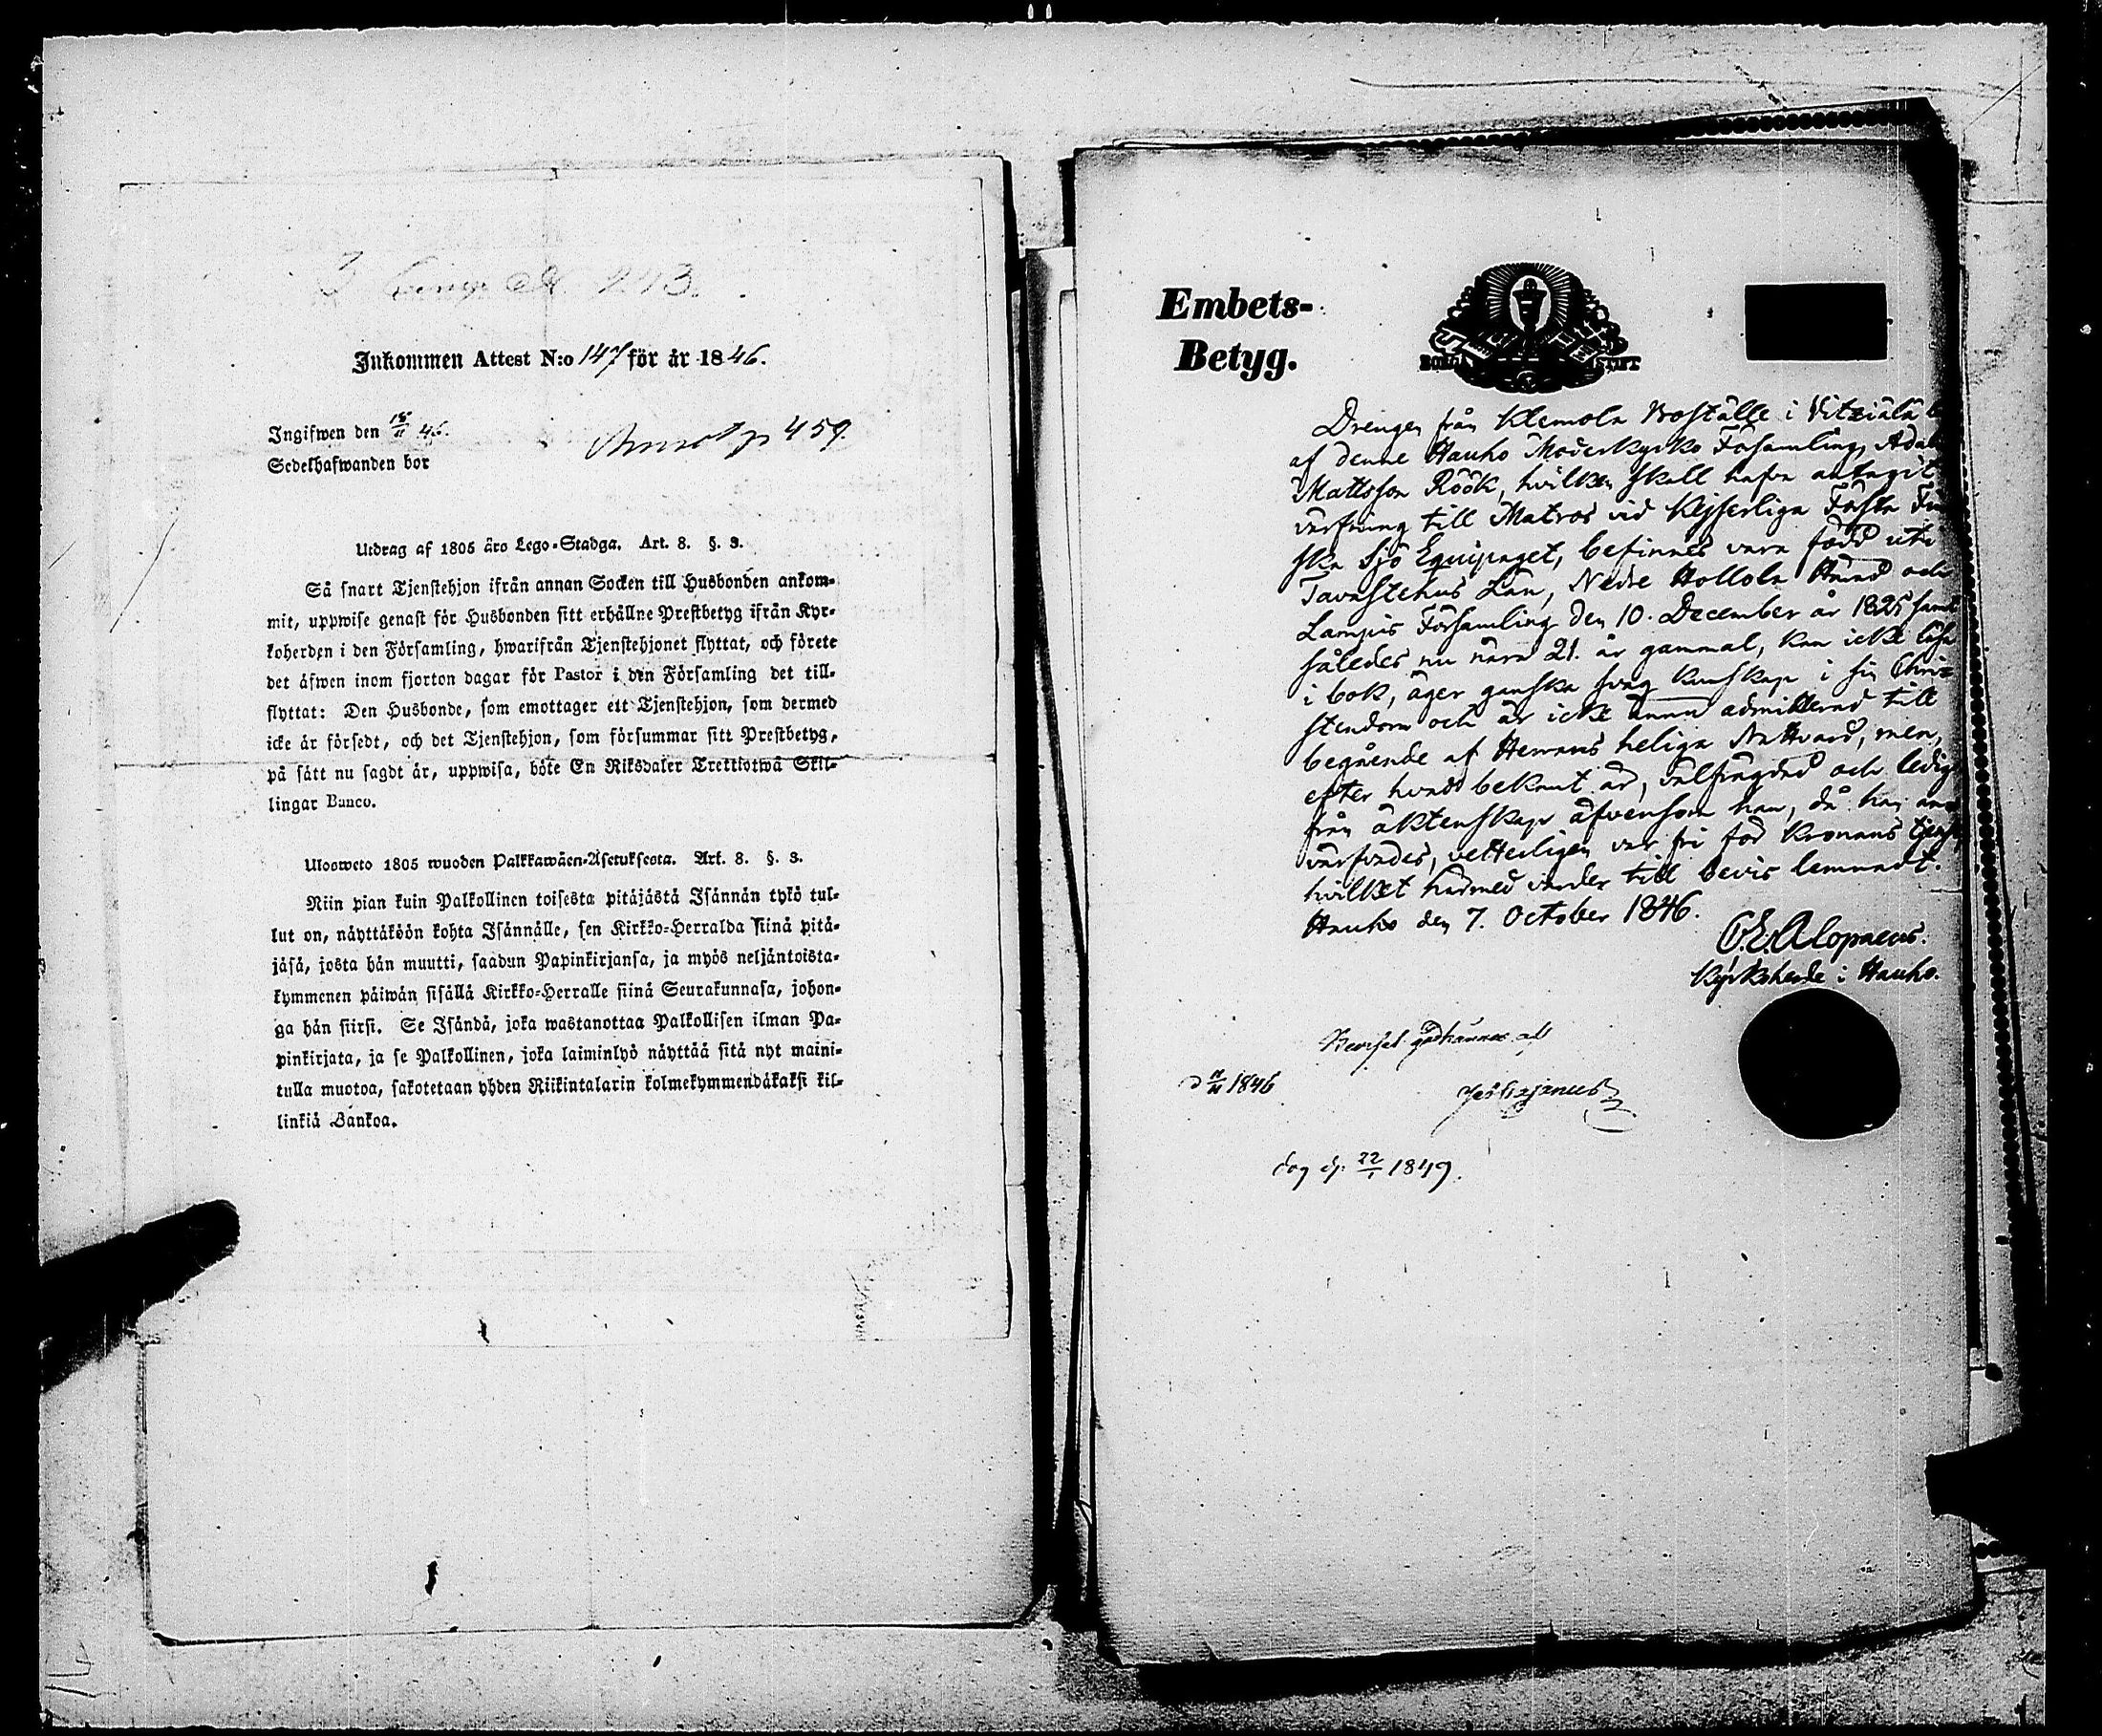 Inkommen Attest N:o 147 för år 1846.
Ingifwen den 18/11 46.
p 459.
Sedelhafwanden bor
Utdrag af 1805 års Lego-Stadga. Art. 8. §. 3.
Så snart Tjenstehjon ifrån annan Socken till Husbonden ankom-
mit, uppwise genast för Husbonden sitt erhållne Prestbetyg ifrån Kyr-
koherden i den Församling, hwarifrån Tjenstehjonet flyttat, och förete
det äfwen inom fjorton dagar för Pastor i den Församling det till-
flyttat: Den Husbonde, som emottager ett Tjenstehjon, som dermed
icke är försedt, och det Tjenstehjon, som försummar sitt Prestbetyg,
på sätt nu sagdt är, uppwisa, böte En Riksdaler Trettiotwå Skil-
lingar Banco.
Ulosweto 1805 wuoden Palkkawäen-Asetuksesta. Art. 8. §. 3.
Niin pian kuin Palkollinen toisesta pitäjästä Isännän tykö tul-
lut on, näyttäköön kohta Isännälle, sen Kirkko-Herralda siinä pitä-
jäsä, josta hän muutti, saadun Papinkirjansa, ja myös neljäntoista-
kymmenen päiwän sisällä Kirkko-Herralle siinä Seurakunnasa, johon-
ga hän siirsi. Se Isändä, joka wastanottaa Palkollisen ilman Pa-
pinkirjata, ja se Palkollinen, joka laiminlyö näyttää sitä nyt maini-
tulla muotoa, sakotetaan yhden Riikintalarin kolmekymmendäkaksi kil-
linkiä Bankoa.
Embets-
Betyg.
BORGÅ STIFT
Drengen från Klemola Boställe i Vitziälä
af denne Hauho Moderkyrko Församling, Adam
Mattsson Röök, hvilken skall hafva antagit
värfning till Matros vid Kejserliga Första Fin
ska Sjö Equipaget, befinnes vara född uti
Tavastehus Län, Nedre Hollola Härad och
Lampis Församling den 10. December år 1825 samt
således nu nära 21. år gammal, kan icke läsa
i bok, äger ganska svag kunskap i sin Chri-
stendom och är icke ännu admitterad till
begående af Herrans heliga Nattvard, men,
efter hvad bekant är, välfrägdad och ledig
från äktenskap äfvensom han, då han
värfvades, vetterligen var fri för Kronans tjenst,
hvilket härmed varder till bevis lemnadt.
Hauho den 7. October 1846.
C.E. Alopaeus.
Kyrkoherde i Hauho.
1846
22/1 1849.